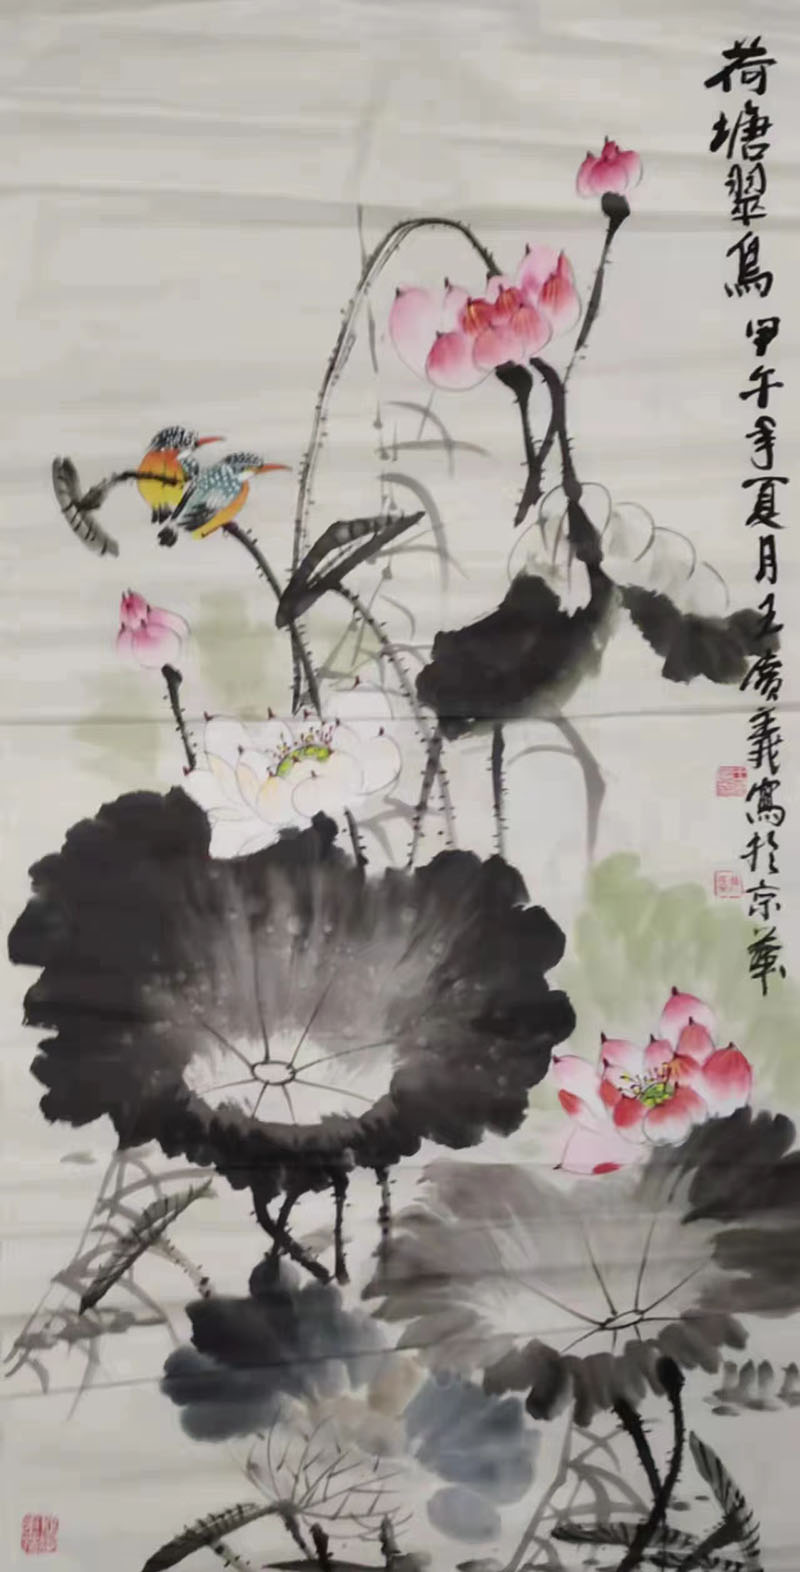 荷塘翠鳥 甲午年夏月王廣義寫於京華